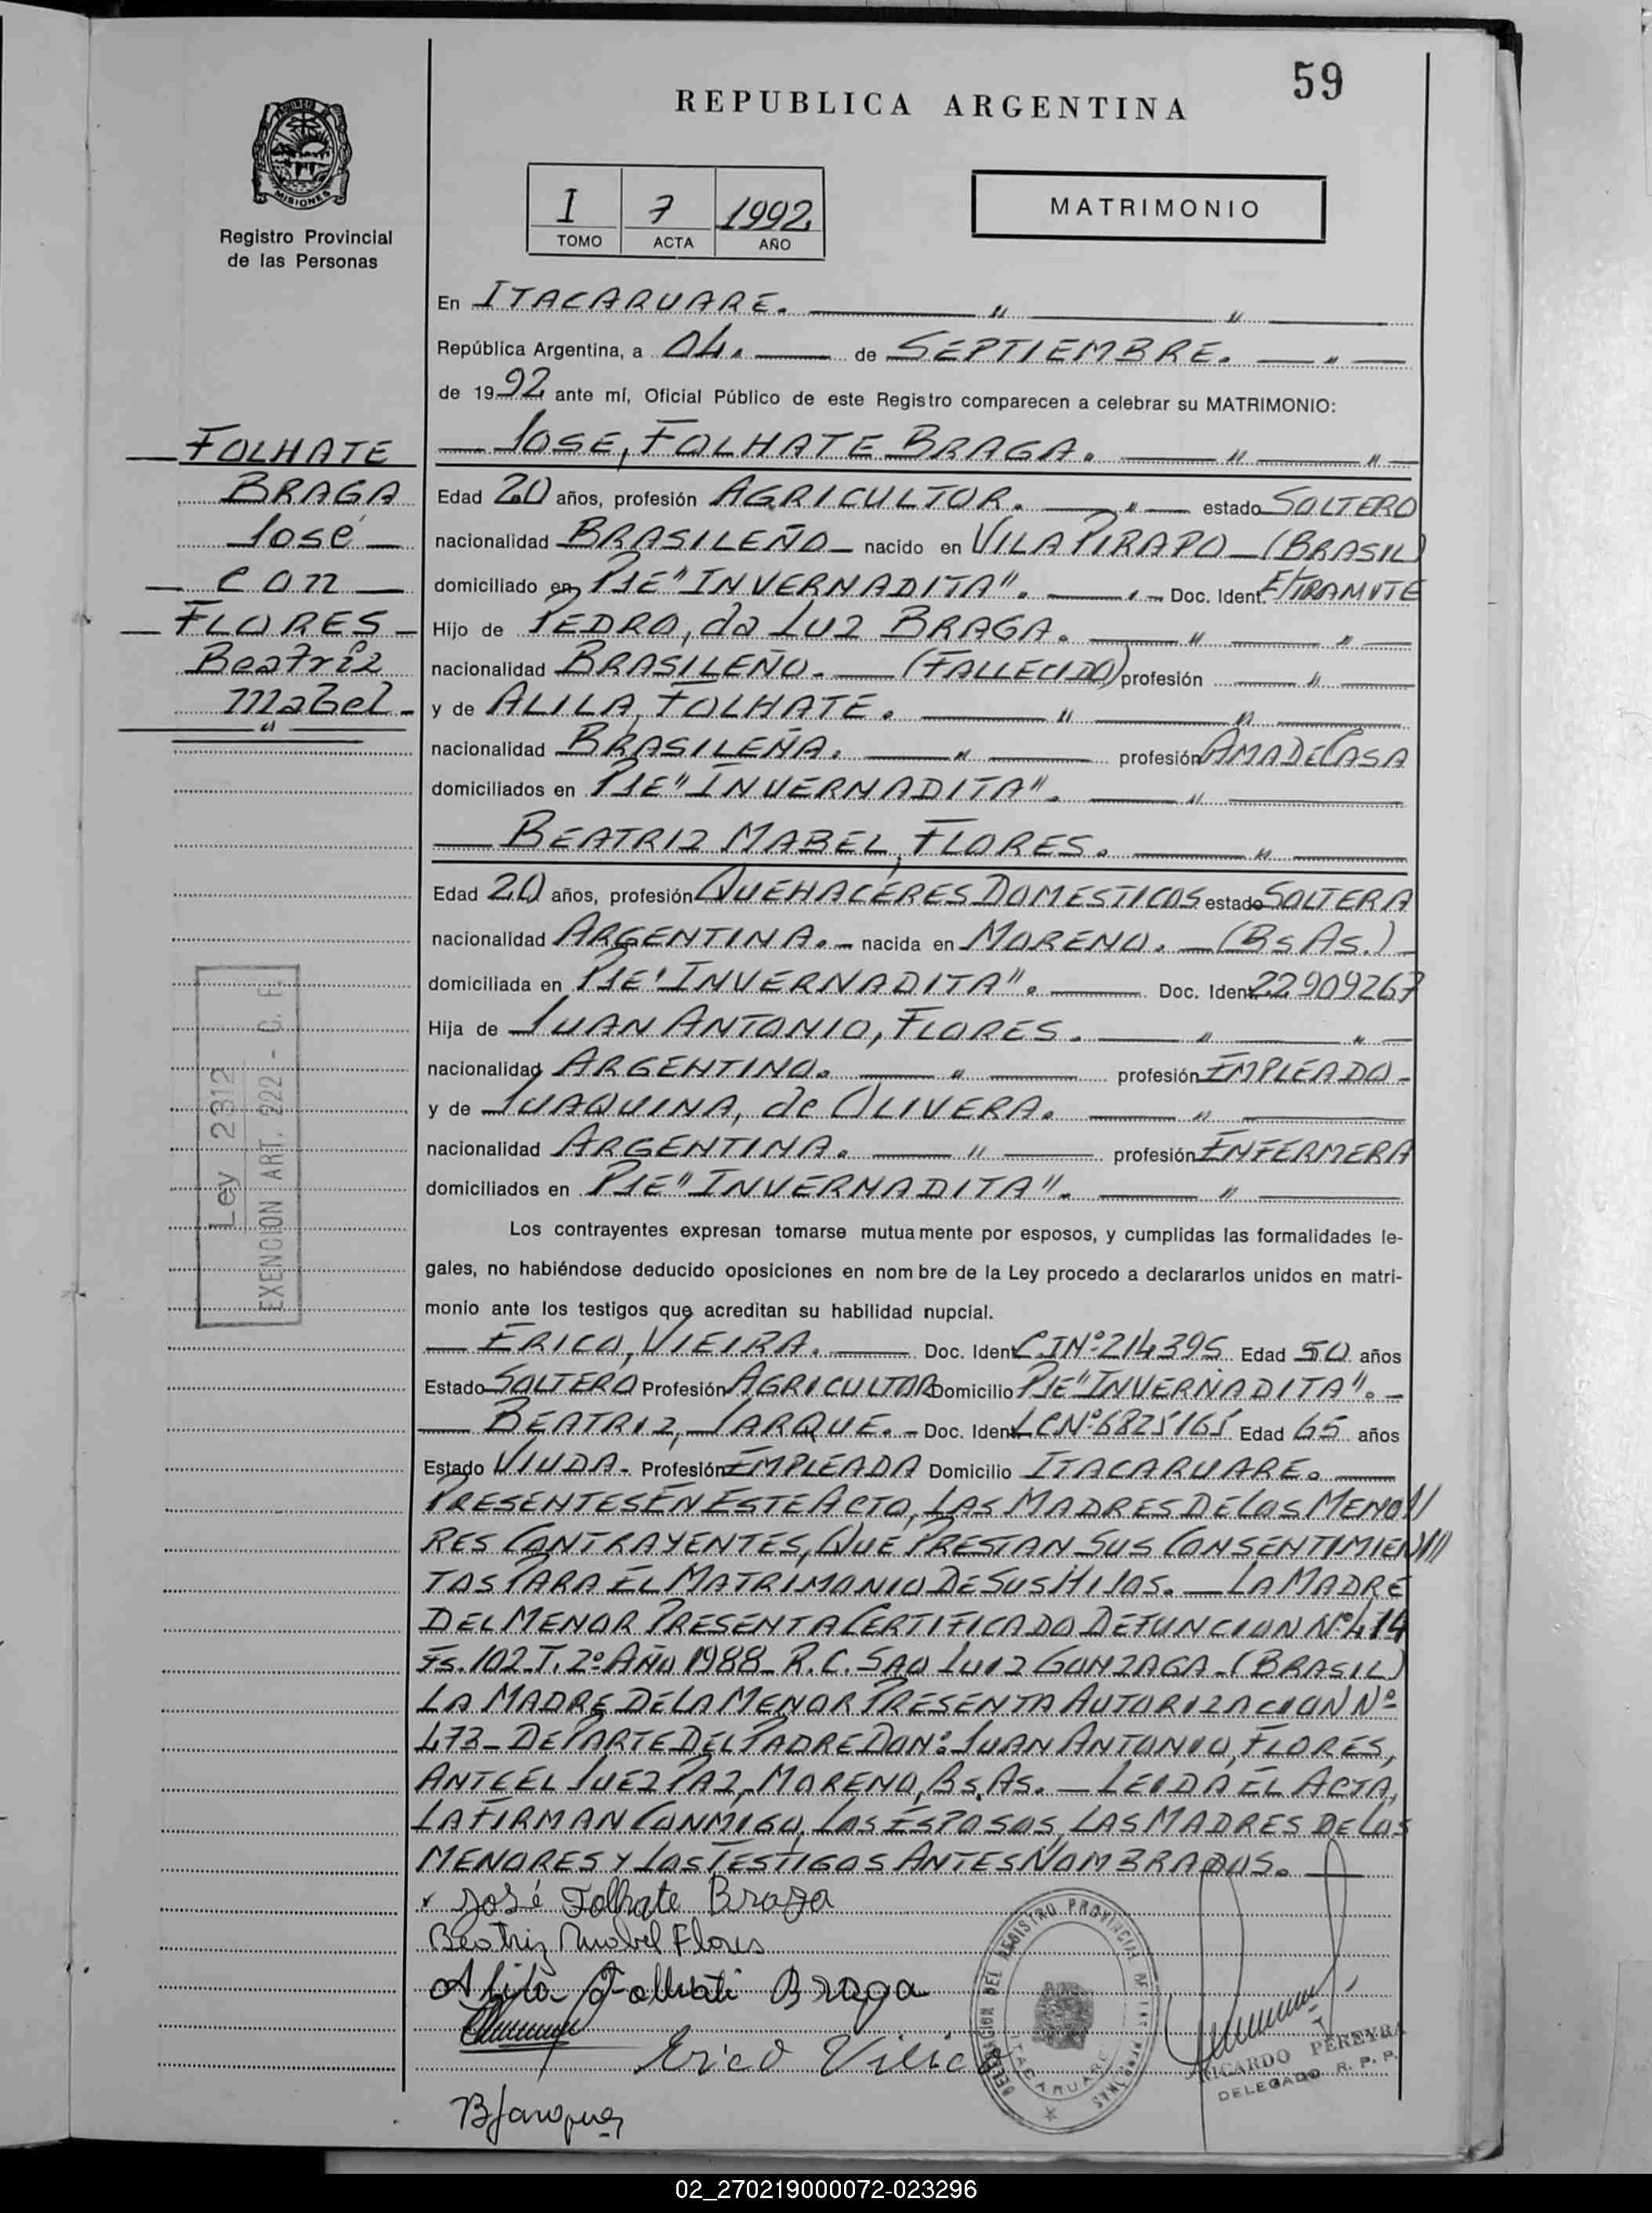 59
REPUBLICA ARGENTINA
MISIONES
Registro Provincial
de las Personas
I 7 1992
TOMO ACTA AÑO
MATRIMONIO
En ITACARUARE. " "
República Argentina, a 04. de SEPTIEMBRE. "
de 1992 ante mí, Oficial Público de este Registro comparecen a celebrar su MATRIMONIO:
JOSE, FOLHATE BRAGA. " "
FOLHATE
BRAGA
José
con
FLORES
Beatriz
Mabel
"
Edad 20 años, profesión AGRICULTOR. " estado SOLTERO
nacionalidad BRASILEÑO nacido en VILA PIRAPO (BRASIL)
domiciliado en PJE "INVERNADITA". Doc. Ident. E/TRAMITE
Hijo de PEDRO, da LUZ BRAGA. " "
nacionalidad BRASILEÑO. (FALLECIDO) profesión "
y de ALILA, FOLHATE. " "
nacionalidad BRASILEÑA. " profesión AMA DE CASA
domiciliados en PJE "INVERNADITA". "
BEATRIZ MABEL, FLORES. "
Edad 20 años, profesión QUEHACERES DOMESTICOS estado SOLTERA
nacionalidad ARGENTINA. nacida en MORENO. (Bs As.)
domiciliada en PJE "INVERNADITA". Doc. Ident. 22909267
Hija de JUAN ANTONIO, FLORES. " "
nacionalidad ARGENTINO. " profesión EMPLEADO
y de JUAQUINA, de OLIVERA. "
nacionalidad ARGENTINA. " profesión ENFERMERA
domiciliados en PJE "INVERNADITA". "
Ley 2312
EXENCION ART. 222 - C. F.
Los contrayentes expresan tomarse mutuamente por esposos, y cumplidas las formalidades le-
gales, no habiéndose deducido oposiciones en nombre de la Ley procedo a declararlos unidos en matri-
monio ante los testigos que acreditan su habilidad nupcial.
ERICO, VIEIRA. Doc. Ident. C.I Nº 214395 Edad 50 años
Estado SOLTERO Profesión AGRICULTOR Domicilio PJE "INVERNADITA".
BEATRIZ, JARQUE. Doc. Ident. LC Nº 6825165 Edad 65 años
Estado VIUDA Profesión EMPLEADA Domicilio ITACARUARE.
PRESENTES EN ESTE ACTO, LAS MADRES DE LOS MENO//
RES CONTRAYENTES, QUE PRESTAN SUS CONSENTIMIEN///
TOS PARA EL MATRIMONIO DE SUS HIJOS. LA MADRE
DEL MENOR PRESENTA CERTIFICADO DEFUNCION Nº 414
Fs. 102 T. 2º AÑO 1988 R.C. SAO LUIZ GONZAGA (BRASIL)
LA MADRE DE LA MENOR PRESENTA AUTORIZACION Nº
473 DE PARTE DEL PADRE DON: JUAN ANTONIO, FLORES,
ANTE EL JUEZ PAZ, MORENO, Bs. As. LEIDA EL ACTA,
LA FIRMAN CONMIGO, LOS ESPOSOS, LAS MADRES DE LOS
MENORES Y LOS TESTIGOS ANTES NOMBRADOS.
x José Folhate Braga
Beatriz Mabel Flores
Alila Folhati Braga
Erico
BJarque
DELEGACION DEL REGISTRO PROVINCIAL DE LAS PERSONAS
ITACARUARE
RICARDO PEREYRA
DELEGADO R. P. P.
02_270219000072-023296